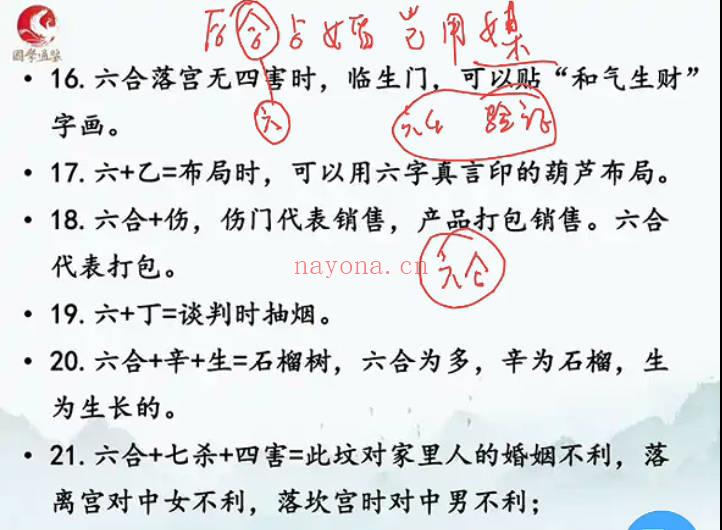 后合占婚姻岂用媒
国学通鉴
• 16. 六合落宫无四害时，临生门，可以贴“和气生财”
字画。
六
六合 验证
• 17. 六+乙=布局时，可以用六字真言印的葫芦布局。
• 18. 六合+伤，伤门代表销售，产品打包销售。六合
代表打包。
nayona.cn
六合
• 19. 六+丁=谈判时抽烟。
• 20. 六合+辛+生=石榴树，六合为多，辛为石榴，生
为生长的。
• 21. 六合+七杀+四害=此坟对家里人的婚姻不利，落
离宫对中女不利，落坎宫时对中男不利；